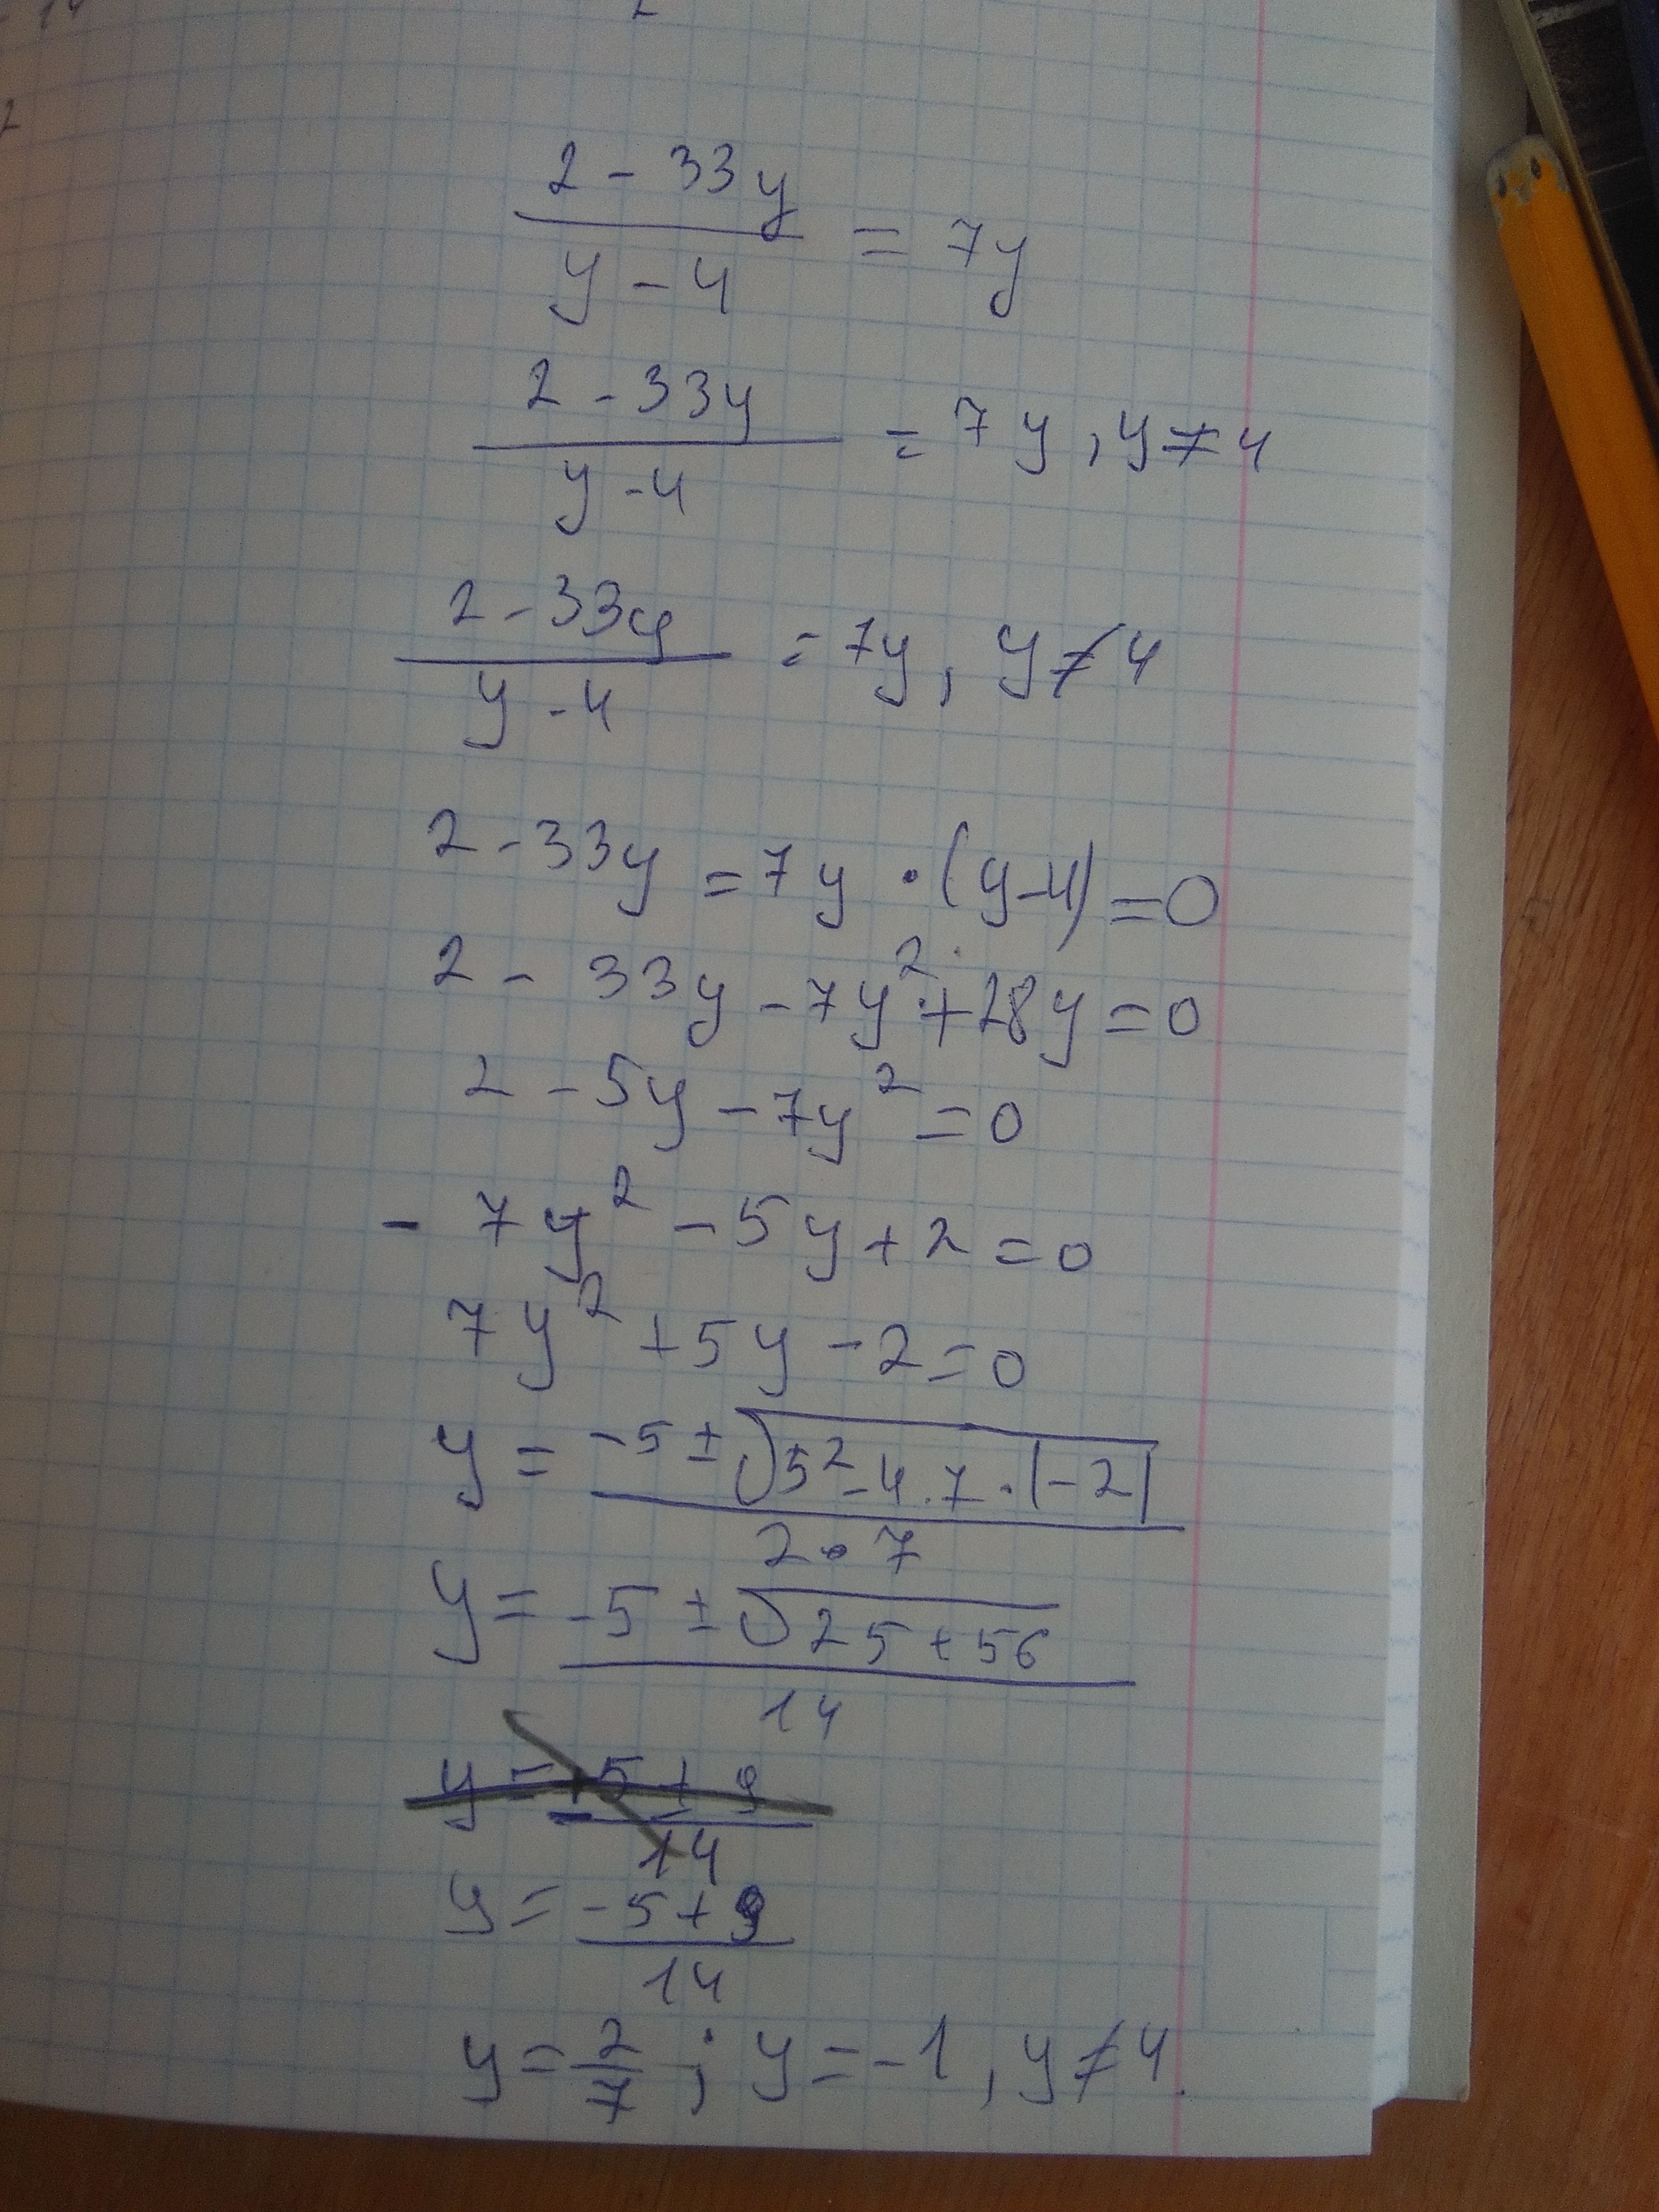 2 - 33y / y - 4 = 7y
2 - 33y / y - 4 = 7y, y ≠ 4
2 - 33y / y - 4 = 7y, y ≠ 4
2 - 33y = 7y · (y - 4) = 0
2 - 33y - 7y² + 28y = 0
2 - 5y - 7y² = 0
- 7y² - 5y + 2 = 0
7y² + 5y - 2 = 0
y = -5 ± √5² - 4 · 7 · |-2| / 2 · 7
y = -5 ± √25 + 56 / 14
y = -5 ± 9 / 14
y = -5 + 9 / 14
y = 2/7 ; y = -1, y ≠ 4.